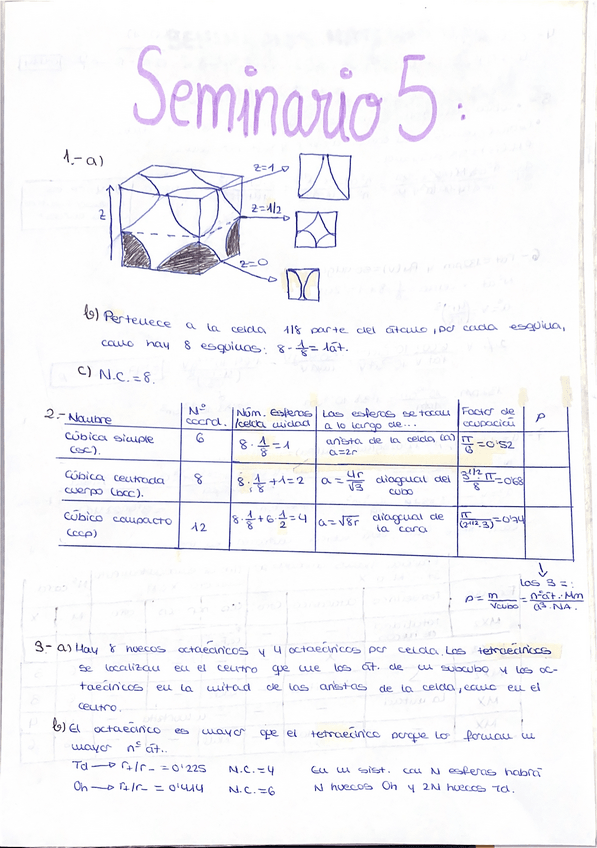 Seminario 5:
1.- a)
z
z=1
z=1/2
z=0
b) Pertenece a la celda 1/8 parte del átomo, por cada esquina,
como hay 8 esquinas: 8 · 1/8 = 1 át.
c) N.C. = 8.
2.- Nombre | Nº coord. | Núm. Esferas /celda unidad | Las esferas se tocan a lo largo de... | Factor de ocupación | ρ
Cúbica simple (sc). | 6 | 8 · 1/8 = 1 | arista de la celda (a) a=2r | π/6 = 0'52
Cúbica centrada cuerpo (bcc). | 8 | 8 · 1/8 + 1 = 2 | a = 4r/√3 diagonal del cubo | 3^1/2 · π/8 = 0'68
Cúbico compacto (ccp) | 12 | 8 · 1/8 + 6 · 1/2 = 4 | a = √8r diagonal de la cara | π/(2^1/2 · 3) = 0'74
Los 3 =:
ρ = m/Vcubo = nºát. · Mm/a³ · NA.
3.- a) Hay 8 huecos octaédricos y 4 octaédricos por celda. Los tetraédricos
se localizan en el centro que une los át. de un subcubo y los oc-
taédricos en la mitad de las aristas de la celda, como en el
centro.
b) El octaédrico es mayor que el tetraédrico porque lo forman un
mayor nº át..
Td → r+/r- = 0'225 N.C. = 4 En un sist. con N esferas habrá
Oh → r+/r- = 0'414 N.C. = 6 N huecos Oh y 2N huecos Td.